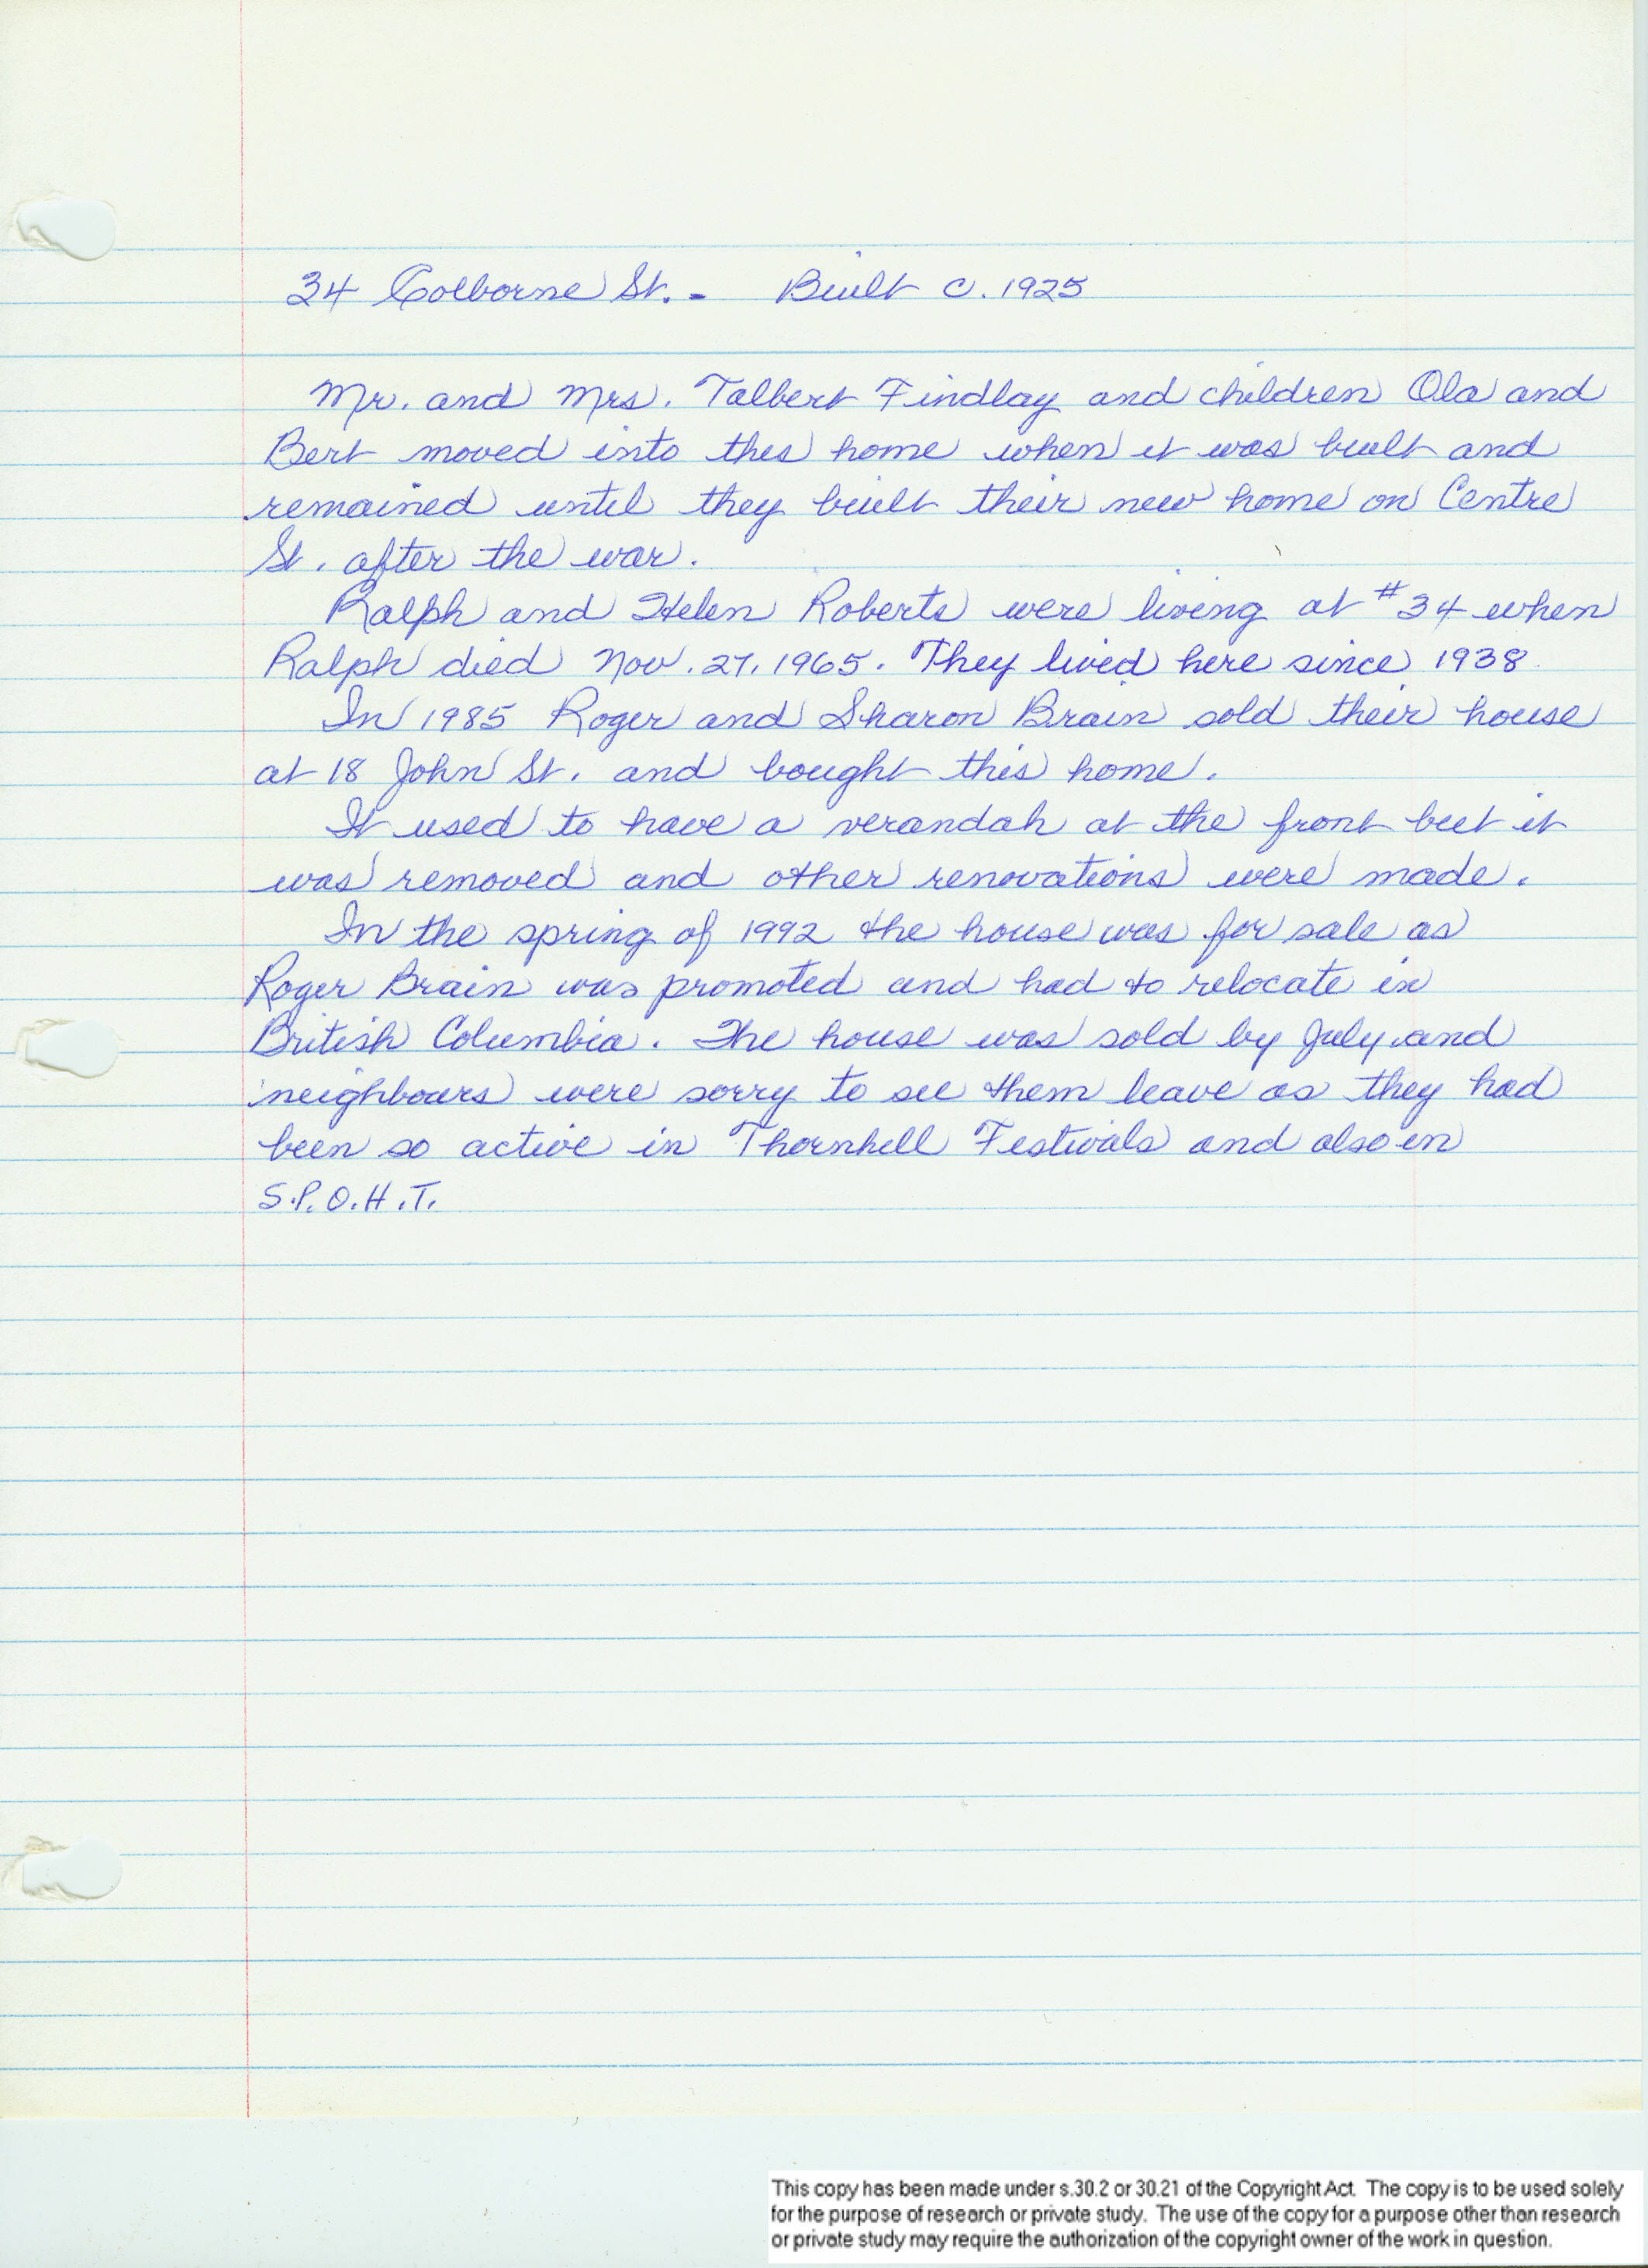 34 Colborne St. - Built c. 1925
Mr. and Mrs. Talbert Findlay and children Ola and
Bert moved into this home when it was built and
remained until they built their new home on Centre
St. after the war.
Ralph and Helen Roberts were living at #34 when
Ralph died Nov. 27, 1965. They lived here since 1938
In 1985 Roger and Sharon Brain sold their house
at 18 John St. and bought this home.
It used to have a verandah at the front but it
was removed and other renovations were made.
In the spring of 1992 the house was for sale as
Roger Brain was promoted and had to relocate in
British Columbia. The house was sold by July and
neighbours were sorry to see them leave as they had
been so active in Thornhill Festivals and also in
S.P.O.H.T.
This copy has been made under s.30.2 or 30.21 of the Copyright Act. The copy is to be used solely
for the purpose of research or private study. The use of the copy for a purpose other than research
or private study may require the authorization of the copyright owner of the work in question.